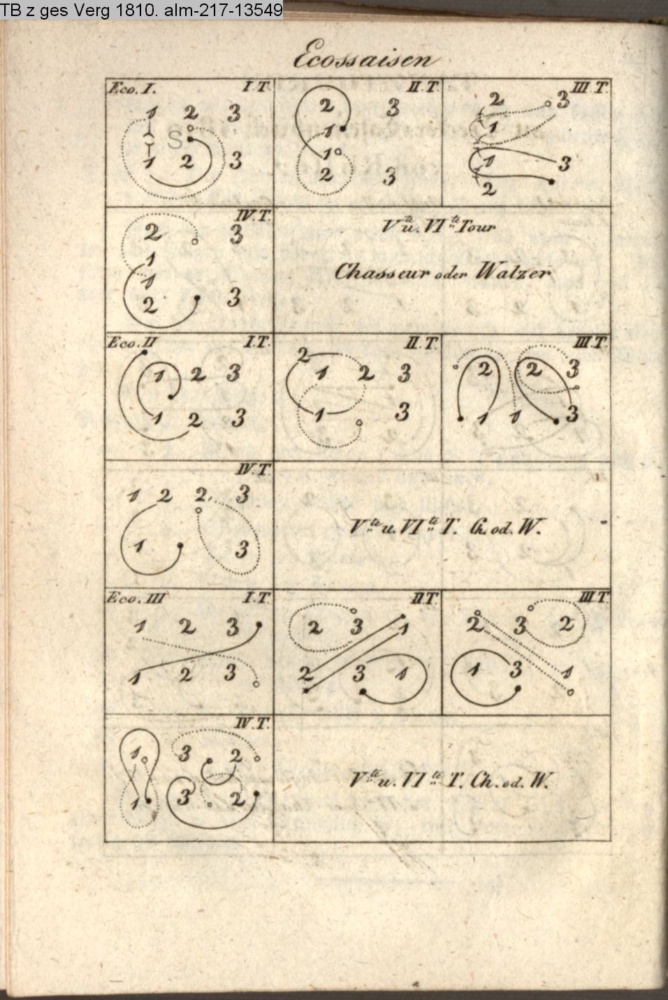 TB z ges Verg 1810. alm-217-13549
Ecossaisen
Eco. I. I.T.
1 2 3
S
1 2 3
II.T.
2 3
1
1
2 3
III.T.
2 3
1
1 3
2
IV.T.
2 3
1
1
2 3
Vte u. VIte Tour
Chasseur oder Walzer
Eco. II I.T.
1 2 3
1 2 3
II.T.
2
1 2 3
1 3
III.T.
2 2 3
1 1 3
IV.T.
1 2 2 3
1 3
Vte u. VIte T. Ch. od. W.
Eco. III I.T.
1 2 3
1 2 3
II.T.
2 3 1
2 3 1
III.T.
2 3 2
1 3 1
IV.T.
1 3 2
1 3 2
Vte u. VIte T. Ch. od. W.